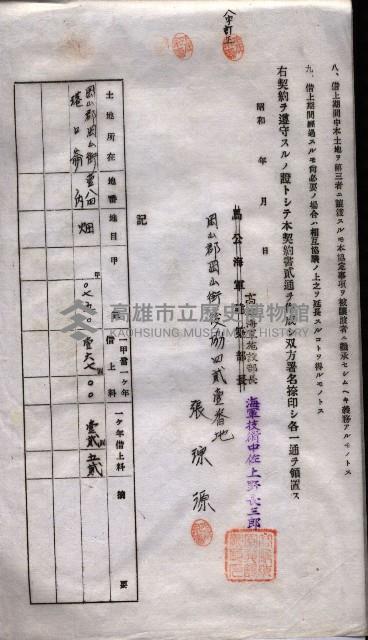 八字訂正
八、借上期間中本土地ヲ第三者ニ讓渡スルモ本協定事項ヲ被讓渡者ニ繼承セシムヘキ義務アルモノトス
九、借上期間經過スルモ尙必要ノ場合ハ相互協議ノ上之ヲ延長スルコトヲ得ルモノトス
右契約ヲ遵守スルノ證トシテ本契約書貳通ヲ作成シ双方署名捺印シ各一通ヲ領置ス
昭和 年 月 日
馬公海軍建築部長
高雄海軍施設部長
海軍技術中佐上野長三郎
岡山郡岡山街 協四貳壹番地
張 源
記
土地所在 地番 地目 甲 一甲當一ケ年借上料 一ケ年借上料 摘要
岡山郡岡山街 畑
高雄市立歷史博物館
KAOHSIUNG MUSEUM OF HISTORY